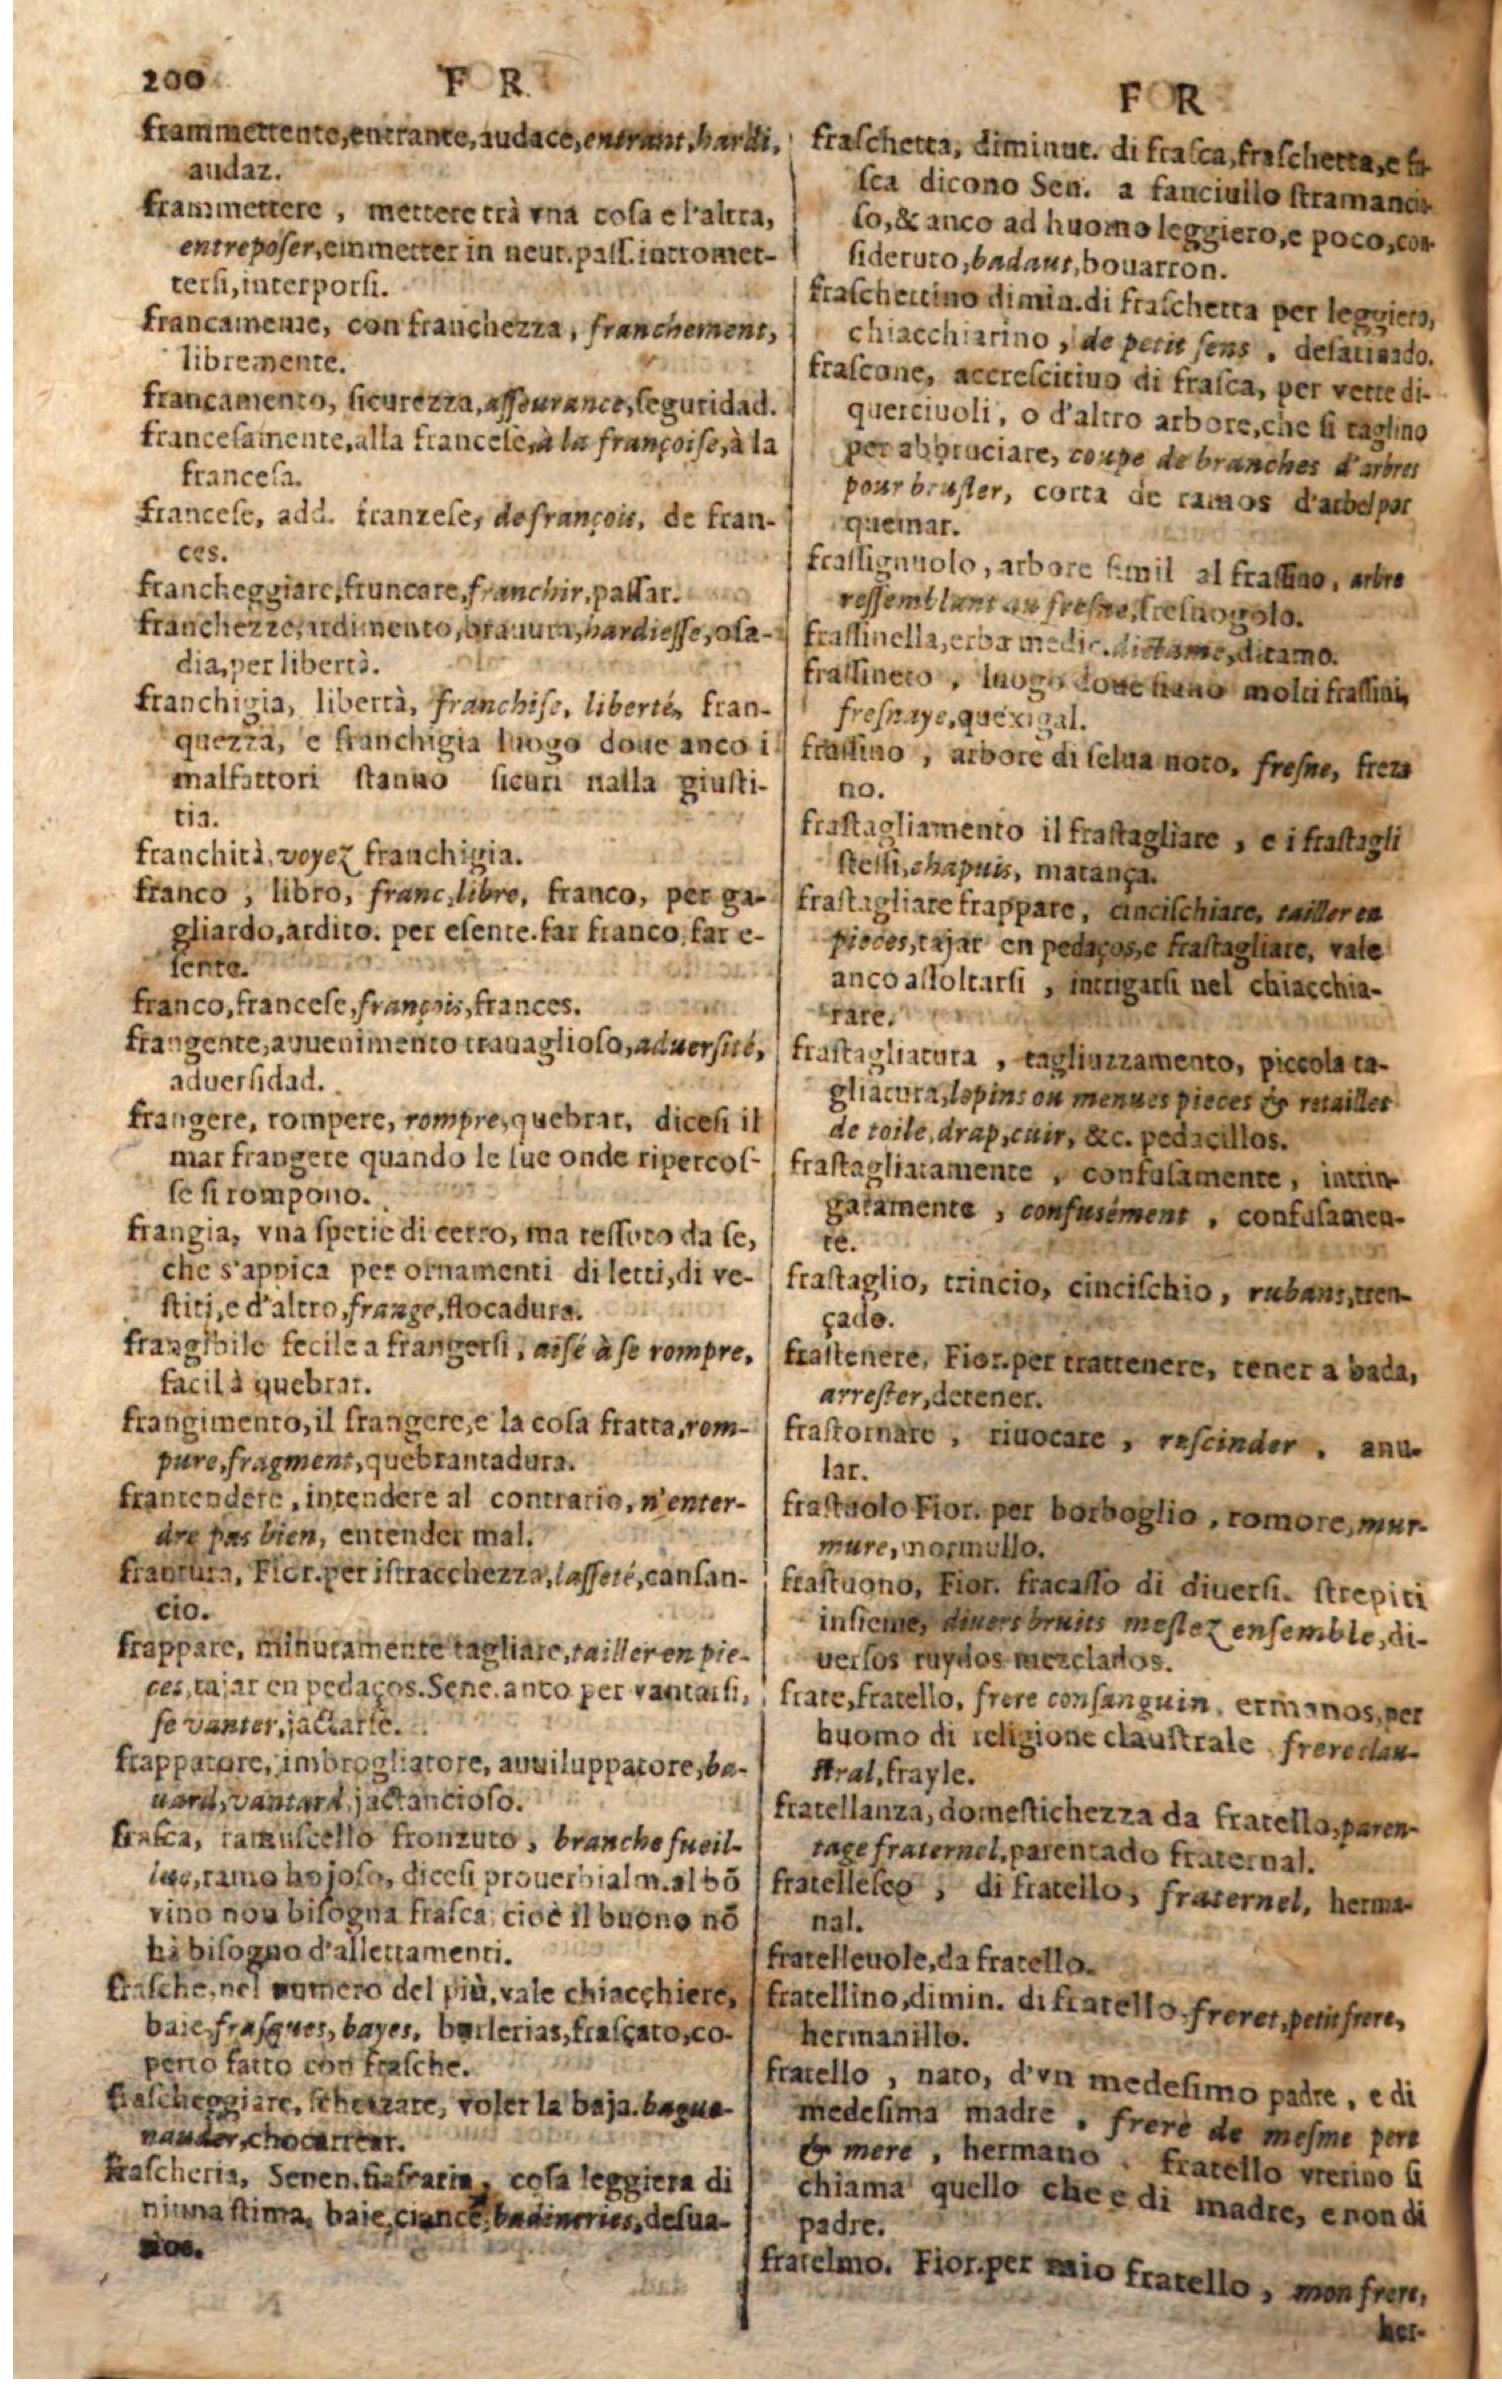 200 F R
frammettente,entrante,audace,entrant,hardi,
audaz.
frammettere , mettere trà vna cosa e l'altra,
entreposer,emmetter in neut.pass.intromet-
tersi,interporsi.
francamente, con franchezza, franchement,
libremente.
francamento, sicurezza,asseurance,seguridad.
francesamente,alla francese,à la françoise,à la
francesa.
francese, add. franzese, de françois, de fran-
ces.
francheggiare,francare,franchir,passar.
franchezze,ardimento,brauura,hardiesse,osa-
dia,per libertà.
franchigia, libertà, franchise, liberté, fran-
quezza, e franchigia luogo doue anco i
malfattori stanno sicuri nalla giusti-
tia.
franchità,voyez franchigia.
franco , libro, franc,libre, franco, per ga-
gliardo,ardito. per esente.far franco,far e-
sente.
franco,francese,françois,frances.
frangente,auuenimento trauaglioso,aduersité,
aduersidad.
frangere, rompere, rompre,quebrar, dicesi il
mar frangere quando le sue onde ripercos-
se si rompono.
frangia, vna spetie di cerro, ma tessuto da se,
che s'appica per ornamenti di letti,di ve-
stiti,e d'altro,frange,flocadura.
frangibile fecile a frangersi, aisé à se rompre,
facil à quebrar.
frangimento,il frangere,e la cosa fratta,rom-
pure,fragment,quebrantadura.
frantendere, intendere al contrario, n'enter-
dre pas bien, entender mal.
frantura, Fior.per istracchezza,lasseté,cansan-
cio.
frappare, minutamente tagliare,tailler en pie-
ces,tajar en pedaços.Sene.anco per vantarsi,
se vanter,jactarse.
frappatore, imbrogliatore, auuiluppatore,ba-
uard,vantard,jactancioso.
frasca, ramuscello fronzuto, branche fueil-
lue,ramo hojoso, dicesi prouerbialm.al bō
vino non bisogna frasca, cioè il buono nō
hà bisogno d'allettamenti.
frasche,nel numero del più,vale chiacchiere,
baie,frasques, bayes, burlerias,frascato,co-
perto fatto con frasche.
frascheggiare, scherzare, voler la baja.bague-
nauder,chocarrear.
frascheria, Senen.fiasfraria, cosa leggiera di
niuna stima, baie,ciance,badineries,desua-
F R
fraschetta, diminut. di frasca,fraschetta,e fra-
sca dicono Sen. a fanciullo stramancio-
so,& anco ad huomo leggiero,e poco,con-
sideruto,badaut,bouarron.
fraschettino dimin.di fraschetta per leggiero,
chiacchiarino , de petit sens , desatinado.
frascone, accrescitiuo di frasca, per vette di-
querciuoli, o d'altro arbore,che si taglino
per abbruciare, coupe de branches d'arbres
pour brusler, corta de ramos d'arbel par
quemar.
frassignuolo, arbore simil al frassino, arbre
ressemblant au fresne,fresnogolo.
frassinella,erba medic.dictame,ditamo.
frassineto , luogo doue siano molti frassini,
fresnaye,quexigal.
frassino , arbore di selua noto, fresne, frez-
no.
frastagliamento il frastagliare , e i frastagli
stessi,chapuis, matança.
frastagliare frappare, cincischiare, tailler en
pieces,tajar en pedaços,e frastagliare, vale
anco affoltarsi , intrigarsi nel chiacchia-
rare.
frastagliatura , tagliuzzamento, piccola ta-
gliatura,lopins ou menues pieces & retailles
de toile,drap,cuir, &c. pedacillos.
frastagliatamente , confusamente , intrin-
gatamente , confusément , confusamen-
te.
frastaglio, trincio, cincischio, rubans,tren-
çado.
frastenere, Fior.per trattenere, tener a bada,
arrester,detener.
frastornare , riuocare , rescinder , anu-
lar.
frastuolo Fior. per borboglio , romore,mur-
mure,mormullo.
frastuono, Fior. fracasso di diuersi. strepiti
insieme, diuers bruits meslez ensemble,di-
uersos ruydos mezclados.
frate,fratello, frere consanguin, ermanos,per
huomo di religione claustrale frere clau-
stral,frayle.
fratellanza,domestichezza da fratello,paren-
tage fraternel,parentado fraternal.
fratellesco , di fratello, fraternel, herma-
nal.
fratelleuole,da fratello.
fratellino,dimin. di fratello,freret,petit frere,
hermanillo.
fratello , nato, d'vn medesimo padre , e di
medesima madre , frere de mesme pere
& mere , hermano , fratello vterino si
chiama quello che e di madre, e non di
padre.
fratelmo. Fior.per mio fratello , mon frere,
her-